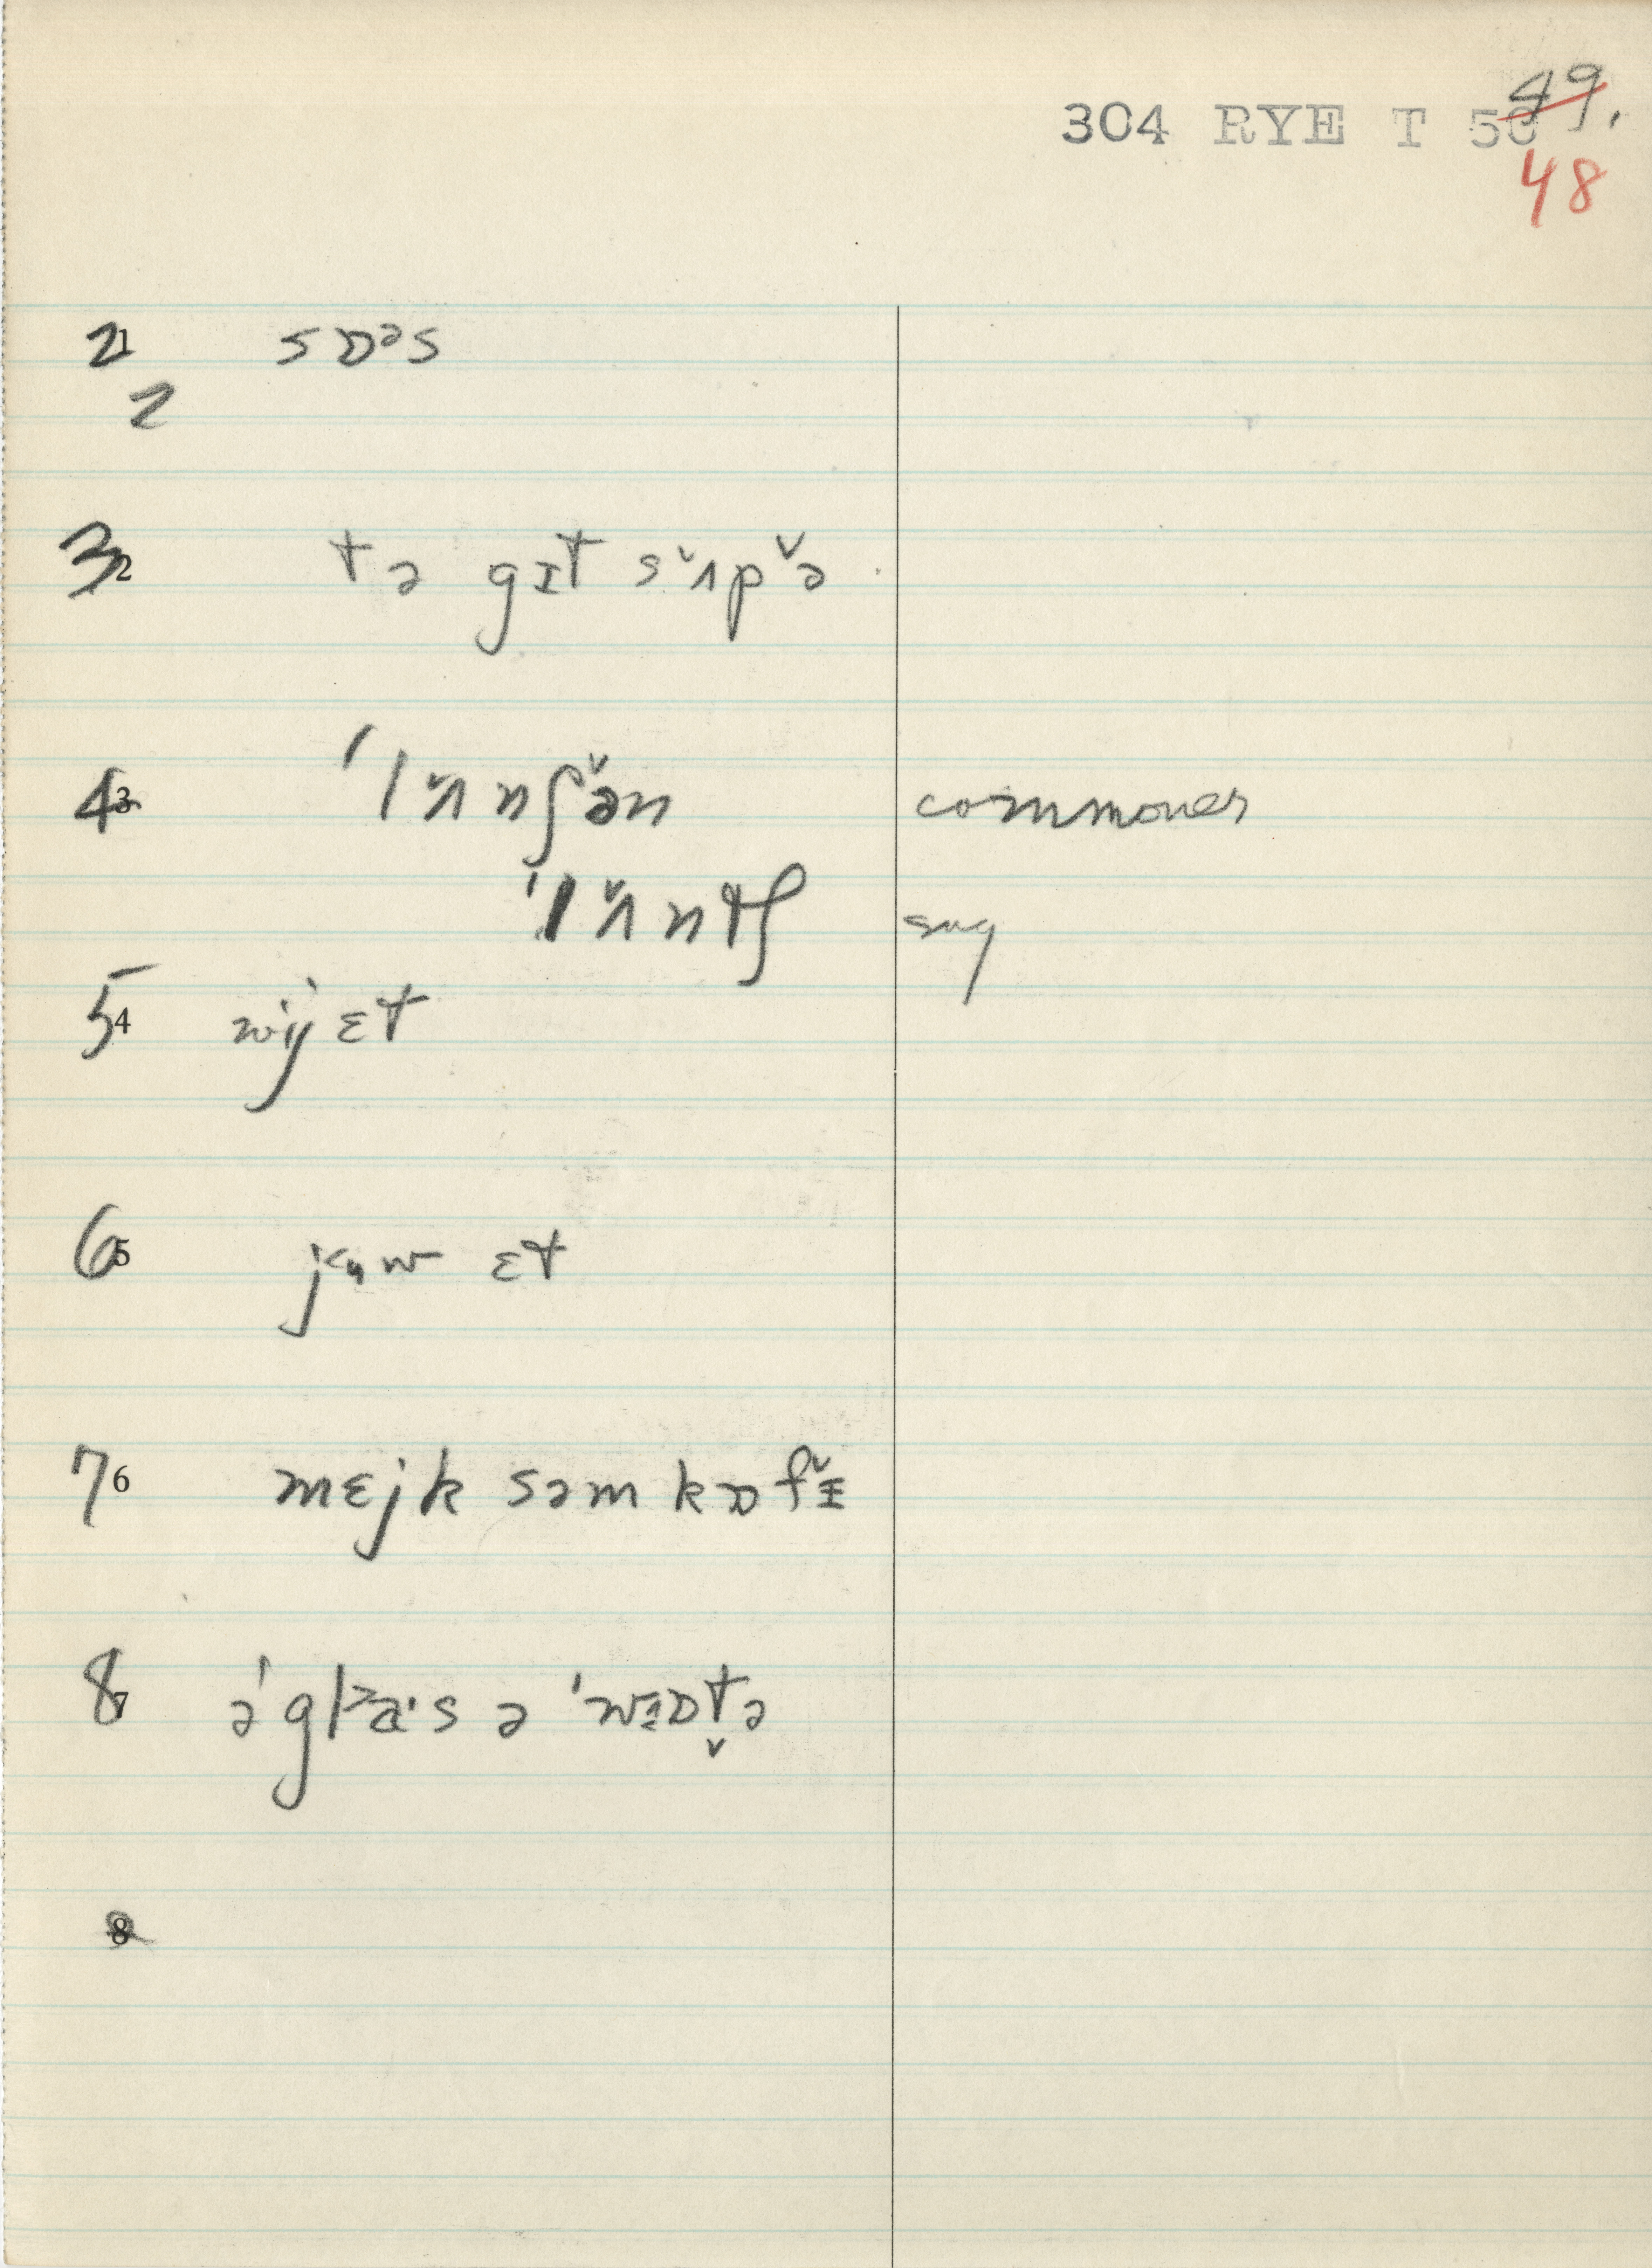 304 RYE T 50 49.
48
21 sɒᵊs
2
32 tə gɪt sʌ̌pə̌
43 ˈlʌ̌nʃə̌n commoner
ˈlʌ̌ntʃ sug
54 wij ɛt
65 j ɛt
76 mɛjk səm kɒfɪ̌
87 ə ˈglas ə ˈwɒt̬ə
8